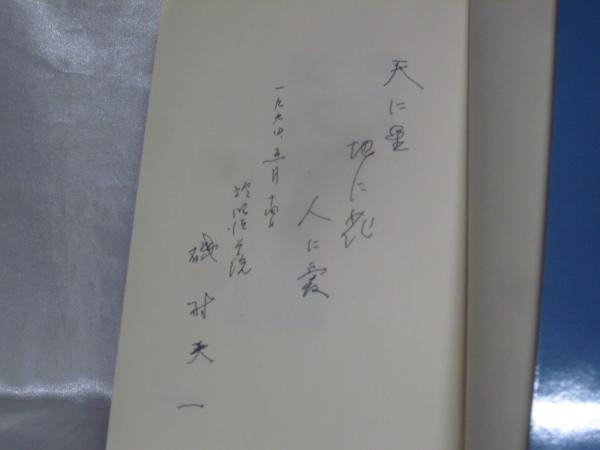 天に星
地に花
人に愛
一九九四、五月
於 明治学院
磯村英一